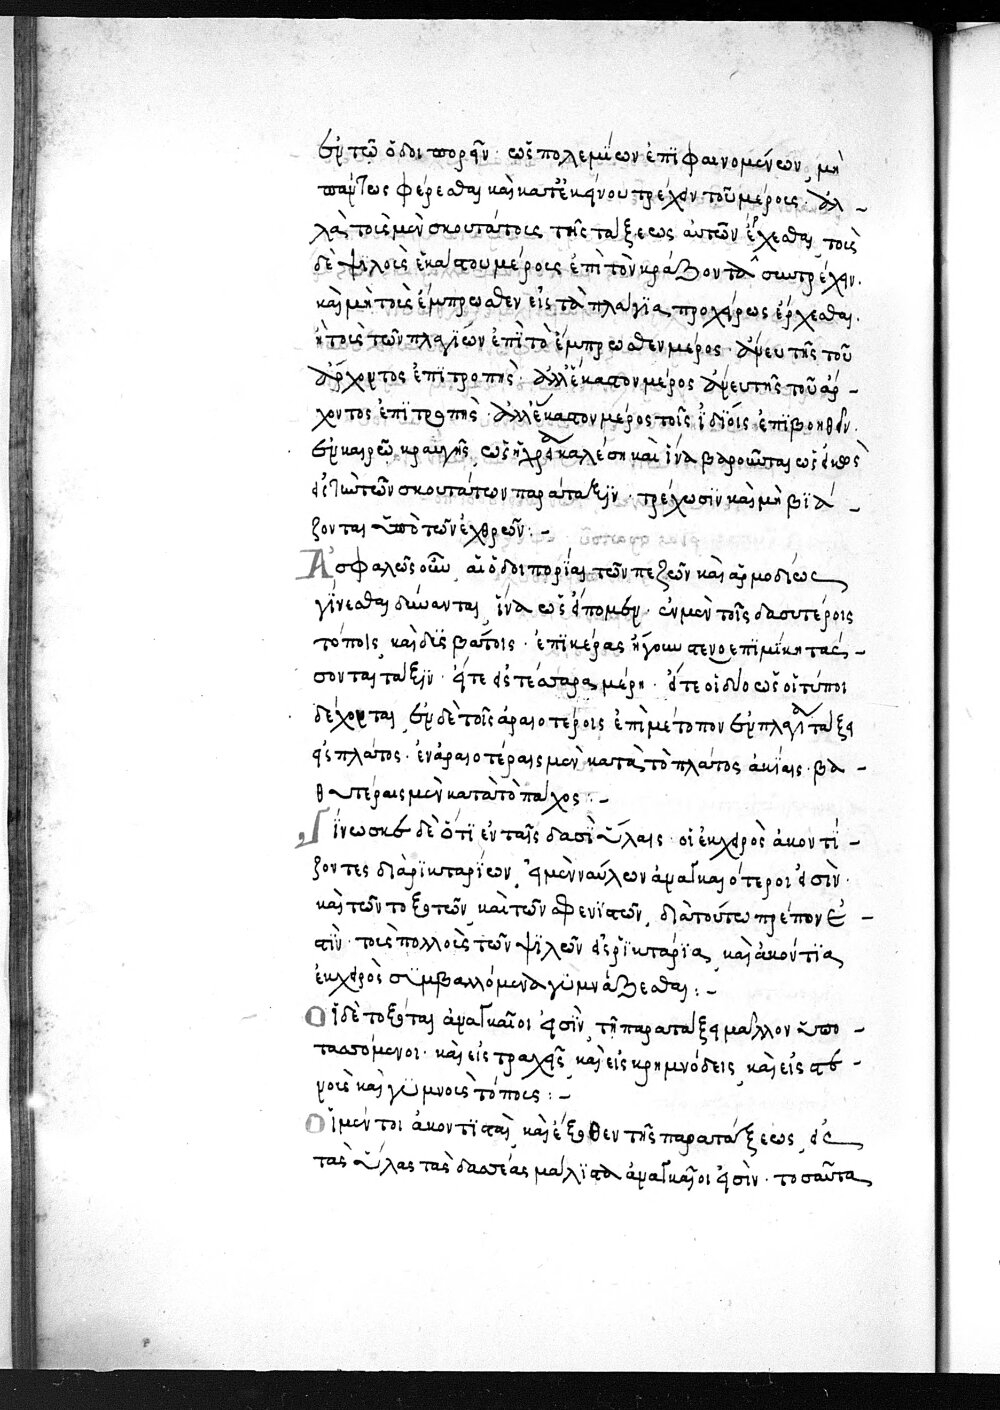 ἐν τῶ ὁδοιπορεῖν· ὡς πολεμΐων ἐπϊφαινομένων, μὴ
πάντως φέρεσθαι καὶ κατ' ἐκείνου τρέχειν τοῦ μέροις· ἀλ-
λὰ τοὶς μὲν σκουτάτοις τῆς τάξεως ἀυτῶν ἔχεσθαι, τοὶς
δὲ ψιλοὶς ἑκάστου μέροις ἐπὶ τὸν κράζοντα συντρέχειν.
καὶ μὴ τοὶς ἔμπρωσθεν εἰς τὰ πλαγΐα προχείρως ἔρχεσθαι.
ἢ τοὶς τῶν πλαγΐων ἐπῒ τὸ ἔμπρωσθεν μέρος· ἄνευ τῆς τοῦ
ἄρχοντος ἐπϊτροπῆς· ἀλλ' ἕκαστον μέρος ἄνευ τῆς τοῦ ἄρ-
χοντος ἐπϊτρωπῆς· ἀλλ' ἕκαστον μέρος τοῖς ἰδΐοις ἐπϊβοηθεῖν.
ἐν καιρῶ κραυγῆς, ὡς ἡ χρεία καλέση καὶ ἵνα βαροῦνται ὡς εἰκὸς
ἀπὸ τῶν σκουτάτων παράταξϊν· τρέχωσϊν καὶ μὴ βϊά-
ζονται ὑπὸ τῶν ἐχθρῶν:-
Ἀσφαλῶς οὖν, αἱ ὁδοιπορΐαι τῶν πεζῶν καὶ ἁρμοδΐως
γΐνεσθαι δύωανται, ἵνα ὡς εἴπομεν· ἐν μὲν τοῖς δασυτέροις
τόποις, καὶ δϊσβάτοις· ἐπὶ κέρας ἤγουν στενοεπϊμίκη τάσ-
σονται τάξϊν· εἴτε εἰς τέσσαρα μέρη· εἴτε οἱ δύο ὡς οἱ τόποι
δέχονται, ἐν δὲ τοῖς ἀραιοτέροις ἐπὶ μέτοπον ἐν πλαγΐα τάξει
εἰς πλάτος· ἐν ἀραιοτέραις μὲν κατὰ τὸ πλάτος ἀκίαις· βα-
θυτέραις μὲν κατὰ τὸ πάχος:-
Γΐνωσκε δὲ ὅτϊ ἐν ταῖς δασὶ ὕλαις· οἱ ἐκ χερὸς ἀκοντΐ-
ζοντες διὰ ῥϊκταρΐων, εἰ μὲν ναύλων ἀναγκαιότεροι εἰσὶν·
καὶ τῶν τοξωτῶν, καὶ τῶν σφενϊτῶν, διὰ τούτω πρέπον ἐ-
στῒν· τοὶς πολλοὶς τῶν ψϊλῶν εἰς ῥϊκτάρϊα, καὶ ἀκόντϊα,
ἐκ χερὸς σϋμβαλλόμενα γϋμνάζεσθαι:-
Οἱ δὲ τοξώται ἀναγκαῖοι εἰσῒν, τῆ παρατάξει μάλλον ὑπο-
τασσόμενοι· καὶ εἰς τραχεῖς, καὶ εἰς κρημνόδεις, καὶ εἰς στε-
νοὶς καὶ γϋμνοὶς τόποις:-
Οἱ μέν τοι ἀκοντϊσταὶ, καὶ ἔξωθεν τῆς παρατάξεως, εἰς
τὰς ὕλας τὰς δασσέας μάλϊστα ἀναγκαῖοι εἰσὶν· τοσαῦτα